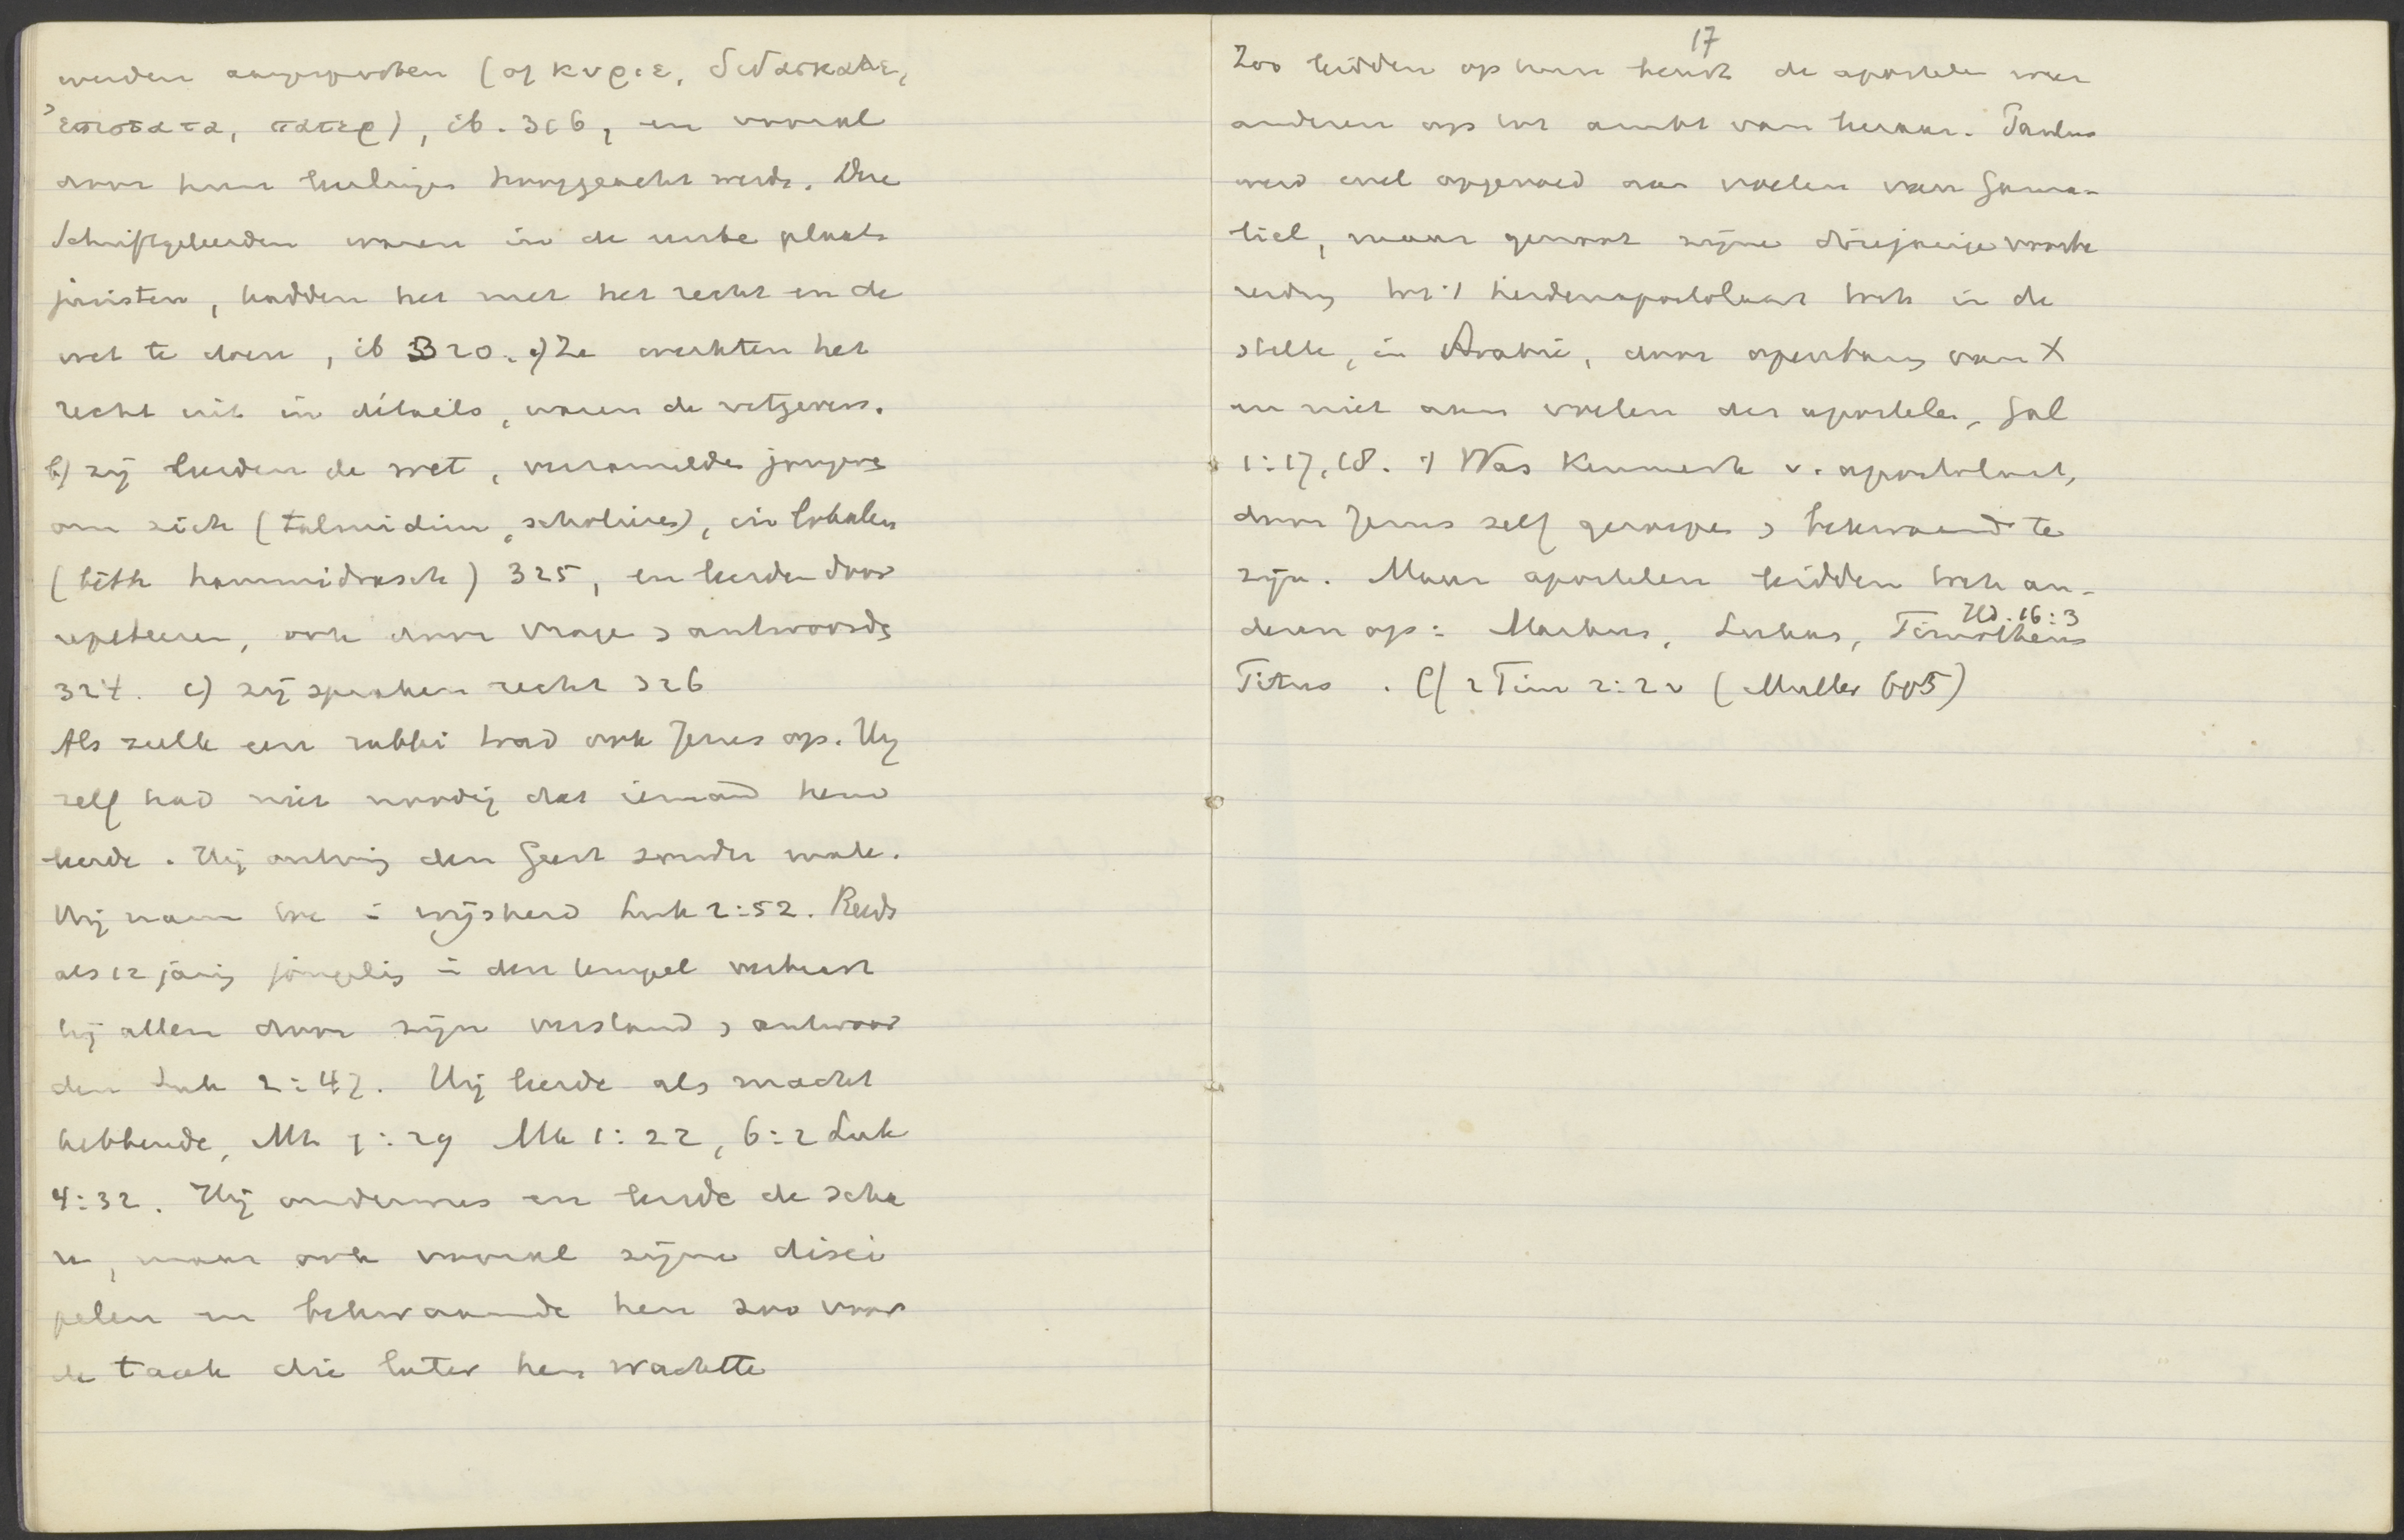 werden aangesproken (of κυριε, διδασκαλε,
ἐπιστατα, πατερ), ib. 316, en vooral
door hun leerlingen hooggeacht werden. Die
Schriftgeleerden waren in de eerste plaats
juristen, hadden het met het recht en de
wet te doen, ib 320. a) Ze werkten het
recht uit in détails, waren de wetgevers.
b) zij leerden de wet, verzamelden jongens
om zich (talmidim, scholieres), in lokalen
(bêth hammidrasch) 325, en leerden door
repeteeren, ook door vragen & antwoorden
324. c) zij spraken recht 326
Als zulk een rabbi trad ook Jezus op. Hij
zelf had niet noodig dat iemand hem
leerde. Hij ontving den Geest zonder mate.
Hij nam toe in wijsheid Luk 2:52. Reeds
als 12 jarig jongeling in den tempel verbaast
hij allen door zijn verstand & antwoor
den Luk 2:47. Hij leerde als macht
hebbende, Mt 7:29 Mk 1:22, 6:2 Luk
4:32. Hij onderwees en leerde de scha
re, maar ook vooral zijne disci
pelen en bekwaamde hen zoo voor
de taak die later hen wachtte
17
Zoo leidden op hun beurt de apostelen weer
anderen op tot ambt van leeraar. Paulus
werd wel opgevoed aan voeten van Gama-
liel, maar genoot zijne driejarige voorbe
reiding tot 't heidenapostolaat toch in de
stilte, in Arabië, door openbaring van X
en niet aan voeten der apostelen, Gal
1:17, 18. 't Was kenmerk v. apostolaat,
door Jezus zelf geroepen & bekwaamd te
zijn. Maar apostelen leidden toch an-
deren op: Markus, Lukas, Timotheus Hd. 16:3
Titus. Cf 2 Tim 2:2v (Muller 605)